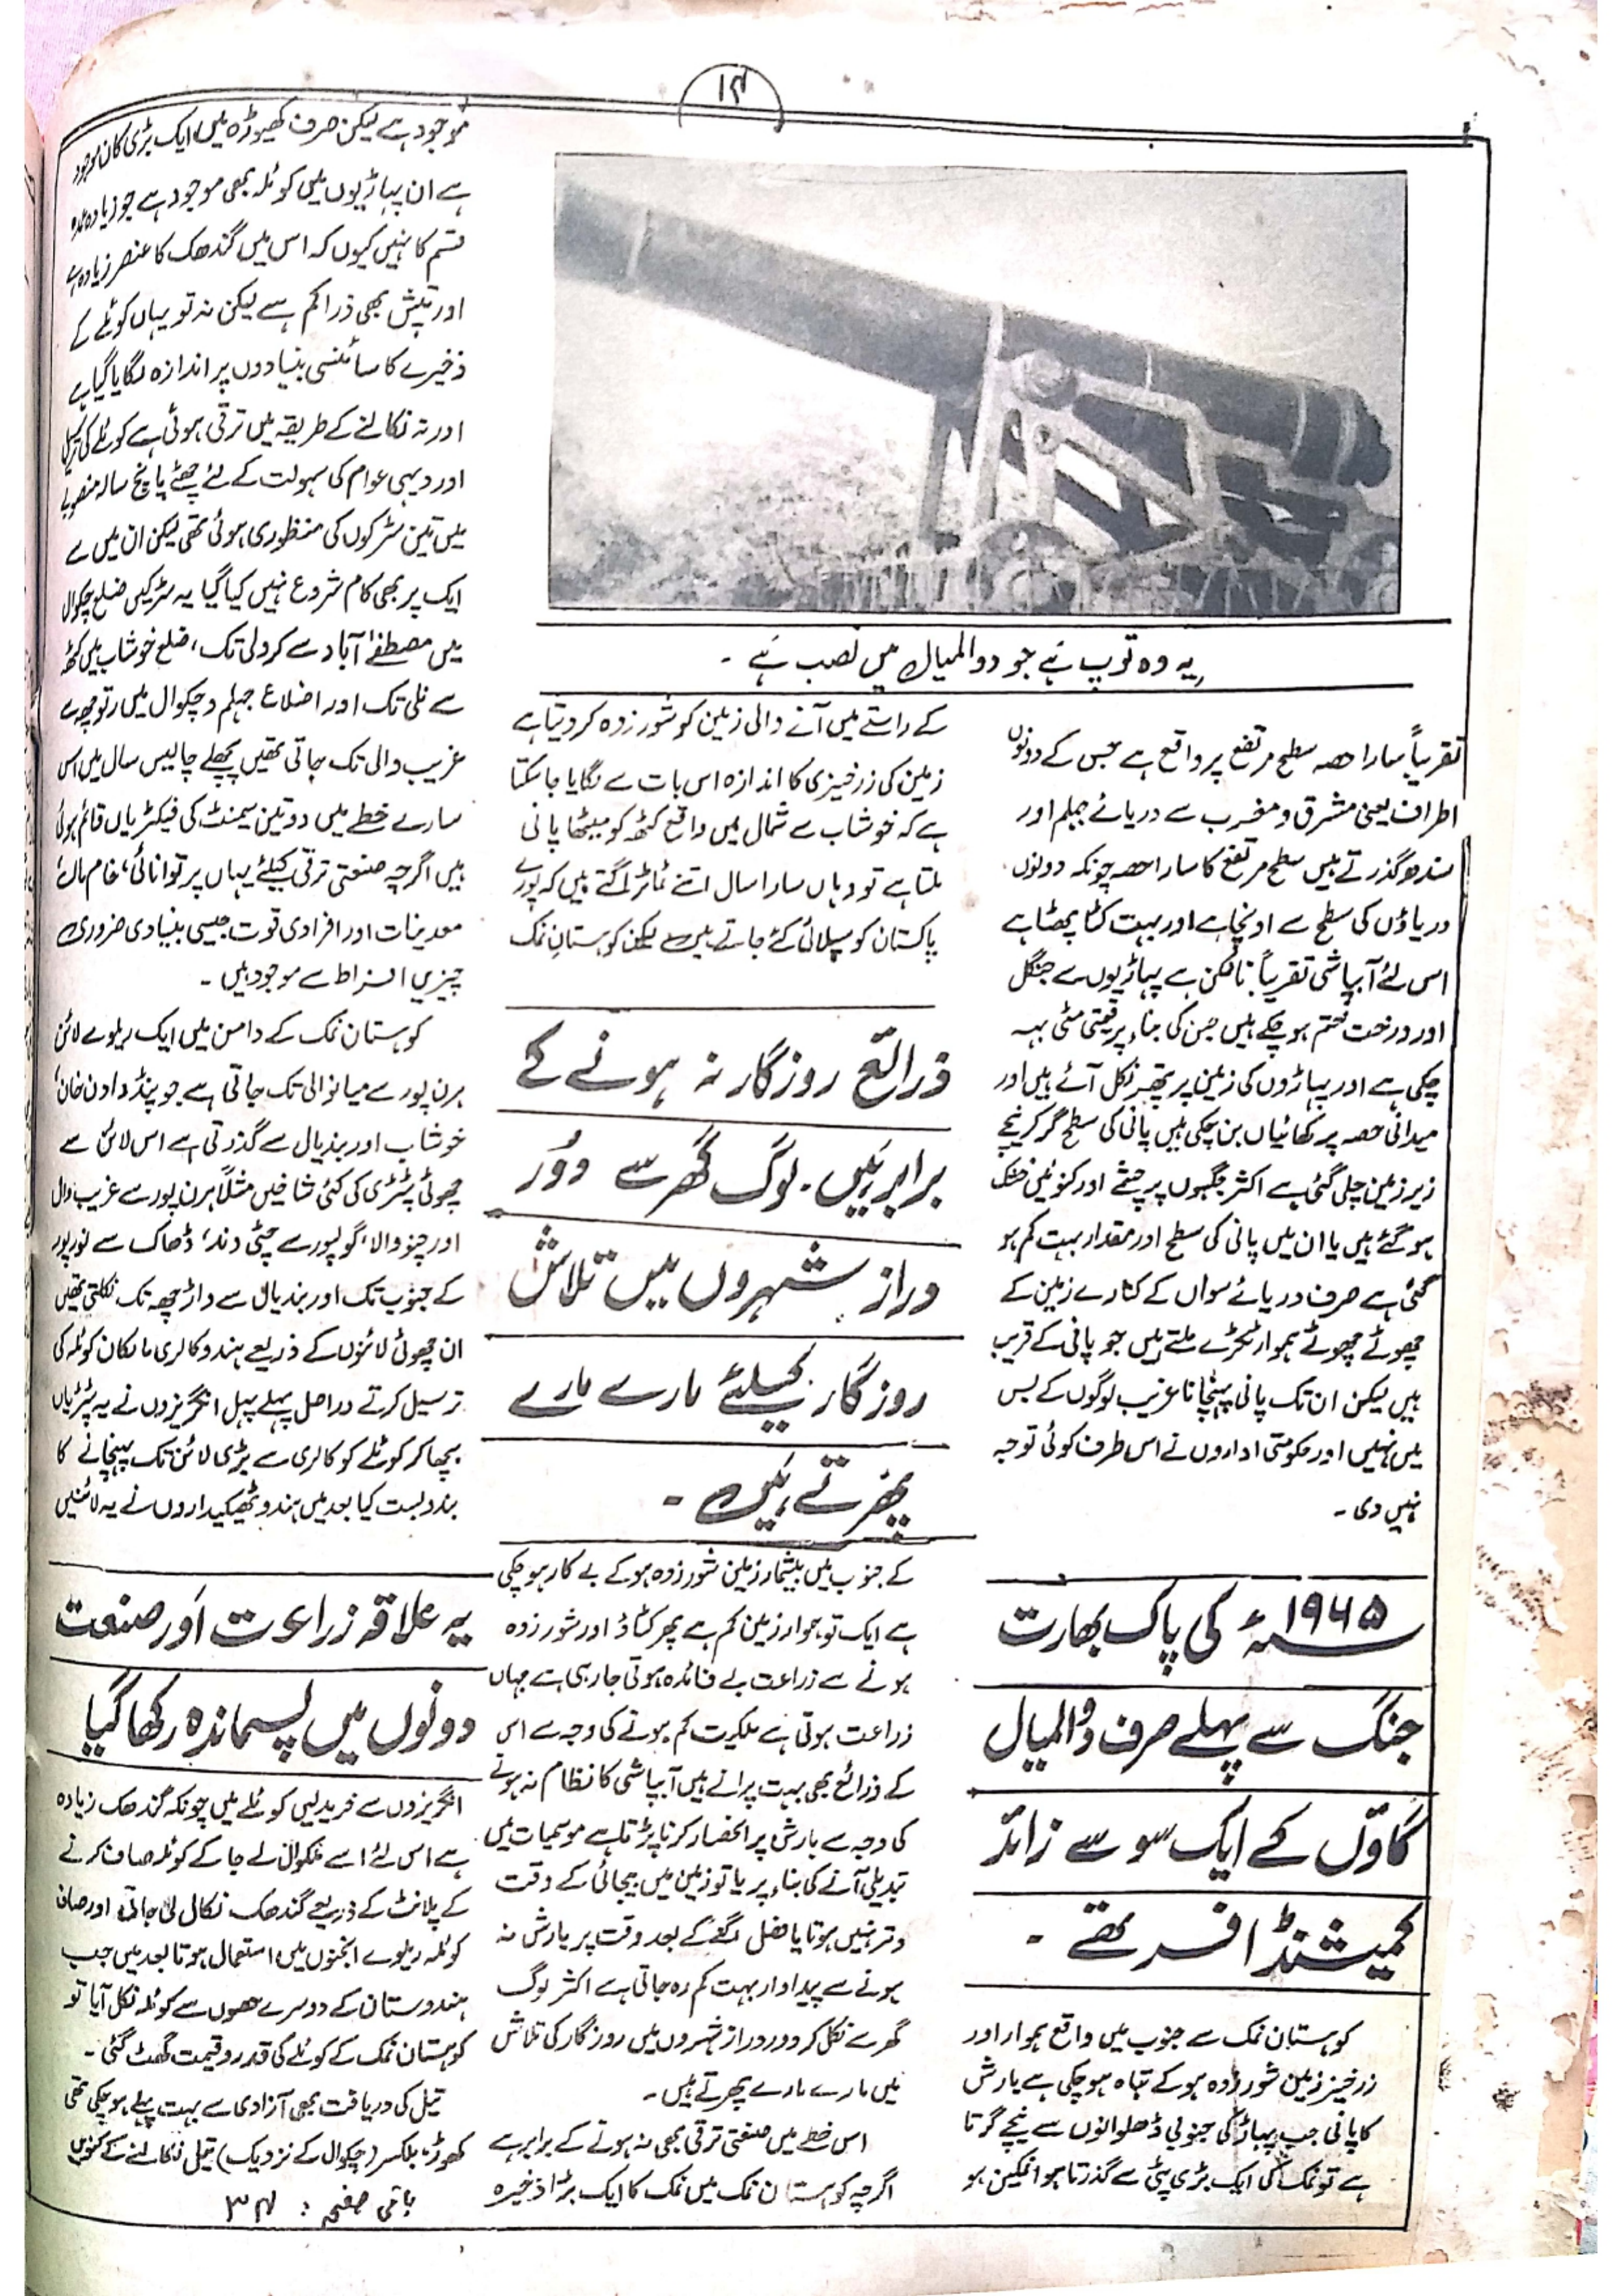 ۱۴
یہ وہ توپ ہے جو دوالمیال میں نصب ہے ۔
تقریباً سارا حصہ سطح مرتفع پر واقع ہے جس کے دونوں
اطراف یعنی مشرق و مغرب سے دریائے جہلم اور
سندھ گذرتے ہیں سطح مرتفع کا سارا حصہ چونکہ دونوں
دریاؤں کی سطح سے اونچا ہے اور بہت کٹا پھٹا ہے
اس لئے آبپاشی تقریباً ناممکن ہے پہاڑیوں سے جنگل
اور درخت ختم ہو چکے ہیں جس کی بناء پر قیمتی مٹی بہہ
چکی ہے اور پہاڑوں کی زمین پر پتھر نکل آئے ہیں اور
میدانی حصہ پر کھائیاں بن چکی ہیں پانی کی سطح گر کر نیچے
زیر زمین چلی گئی ہے اکثر جگہوں پر چشمے اور کنوئیں خشک
ہو گئے ہیں یا ان میں پانی کی سطح اور مقدار بہت کم ہو
گئی ہے صرف دریائے سواں کے کنارے زمین کے
چھوٹے چھوٹے ہموار ٹکڑے ملتے ہیں جو پانی کے قریب
ہیں لیکن ان تک پانی پہنچانا غریب لوگوں کے بس
میں نہیں اور حکومتی اداروں نے اس طرف کوئی توجہ
نہیں دی ۔
۱۹۶۵ء کی پاک بھارت
جنگ سے پہلے صرف دوالمیال
گاؤں کے ایک سو سے زائد
کمیشنڈ افسر تھے ۔
کوہستان نمک سے جنوب میں واقع ہموار اور
زرخیز زمین شور زدہ ہو کے تباہ ہو چکی ہے بارش
کا پانی جب پہاڑ کی جنوبی ڈھلوانوں سے نیچے گرتا
ہے تو نمک کی ایک بڑی پٹی سے گذرتا ہوا نمکین ہو
کے راستے میں آنے والی زمین کو شور زدہ کر دیتا ہے
زمین کی زرخیزی کا اندازہ اس بات سے لگایا جا سکتا
ہے کہ خوشاب سے شمال میں واقع کٹھہ کو میٹھا پانی
ملتا ہے تو وہاں سارا سال اتنے ٹماٹر اگتے ہیں کہ پورے
پاکستان کو سپلائی کئے جاتے ہیں لیکن کوہستانِ نمک
ذرائع روزگار نہ ہونے کے
برابر ہیں ۔ لوگ گھر سے دُور
دراز شہروں میں تلاش
روزگار کیلئے مارے مارے
پھرتے ہیں ۔
کے جنوب میں بیشمار زمین شور زدہ ہو کے بے کار ہو چکی
ہے ایک تو ہموار زمین کم ہے پھر کٹاؤ اور شور زدہ
ہونے سے زراعت بے فائدہ ہوتی جا رہی ہے جہاں
زراعت ہوتی ہے ملکیت کم ہونے کی وجہ سے اس
کے ذرائع بھی بہت پرانے ہیں آبپاشی کا نظام نہ ہونے
کی وجہ سے بارش پر انحصار کرنا پڑتا ہے موسمیات میں
تبدیلی آنے کی بناء پر یا تو زمین میں بیجائی کے وقت
وتر نہیں ہوتا یا فصل اگنے کے بعد وقت پر بارش نہ
ہونے سے پیداوار بہت کم رہ جاتی ہے اکثر لوگ
گھر سے نکل کر دور دراز شہروں میں روزگار کی تلاش
میں مارے مارے پھرتے ہیں ۔
اس خطے میں صنعتی ترقی بھی نہ ہونے کے برابر ہے
اگرچہ کوہستان نمک میں نمک کا ایک بڑا ذخیرہ
موجود ہے لیکن صرف کھیوڑہ میں ایک بڑی کان موجود
ہے ان پہاڑیوں میں کوئلہ بھی موجود ہے جو زیادہ عمدہ
قسم کا نہیں کیوں کہ اس میں گندھک کا عنصر زیادہ ہے
اور تپش بھی ذرا کم ہے لیکن نہ تو یہاں کوئلے کے
ذخیرے کا سائنسی بنیادوں پر اندازہ لگایا گیا ہے
اور نہ نکالنے کے طریقہ میں ترقی ہوئی ہے کوئلے کی ترسیل
اور دیہی عوام کی سہولت کے لئے چھٹے پانچ سالہ منصوبے
میں تین سڑکوں کی منظوری ہوئی تھی لیکن ان میں سے
ایک پر بھی کام شروع نہیں کیا گیا یہ سڑکیں ضلع چکوال
میں مصطفےٰ آباد سے کرولی تک، ضلع خوشاب میں کٹھہ
سے نلی تک اور اضلاع جہلم و چکوال میں رتوچھہ سے
غریب والی تک جاتی تھیں پچھلے چالیس سال میں اس
سارے خطے میں دو تین سیمنٹ کی فیکٹریاں قائم ہوئی
ہیں اگرچہ صنعتی ترقی کیلئے یہاں پر توانائی، خام مال،
معدنیات اور افرادی قوت جیسی بنیادی ضروری
چیزیں افراط سے موجود ہیں ۔
کوہستان نمک کے دامن میں ایک ریلوے لائن
ہرن پور سے میانوالی تک جاتی ہے جو پنڈ دادن خان،
خوشاب اور بندیال سے گذرتی ہے اس لائن سے
چھوٹی پٹڑی کی کئی شاخیں مثلاً ہرن پور سے غریب وال
اور چنو والا، گولپور سے چٹی دند، ڈھاک سے نور پور
کے جنوب تک اور بندیال سے واڑچھہ تک نکلتی تھیں
ان چھوٹی لائنوں کے ذریعے ہندو کالری مالکان کوئلہ کی
ترسیل کرتے دراصل پہلے پہل انگریزوں نے یہ پٹڑیاں
بچھا کر کوئلے کو کالری سے بڑی لائن تک پہنچانے کا
بندوبست کیا بعد میں ہندو ٹھیکیداروں نے یہ لائنیں
یہ علاقہ زراعت اور صنعت
دونوں میں پسماندہ رکھا گیا
انگریزوں سے خرید لیں کوئلے میں چونکہ گندھک زیادہ
ہے اس لئے اسے لے جا کے کوئلہ صاف کرنے
کے پلانٹ کے ذریعے گندھک نکال لی جاتی اور صاف
کوئلہ ریلوے انجنوں میں استعمال ہوتا بعد میں جب
ہندوستان کے دوسرے حصوں سے کوئلہ نکل آیا تو
کوہستان نمک کے کوئلے کی قدر و قیمت گھٹ گئی ۔
تیل کی دریافت بھی آزادی سے بہت پہلے ہو چکی تھی
کھوڑ، بلکسر (چکوال کے نزدیک) تیل نکالنے کے کنویں
باقی صفحہ : ۳۴